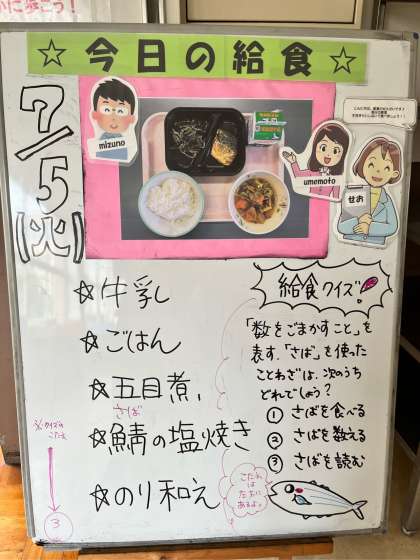 に歩こう!
☆今日の給食☆
7/5(火)
mizuno
umemoto
せお
☆牛乳
☆ごはん
☆五目煮
さば
☆鯖の塩焼き
☆のり和え
給食クイズ!
「数をごまかすこと」を
表す、「さば」を使った
ことわざは、次のうち
どれでしょう?
① さばを食べる
② さばを数える
③ さばを読む
こたえは
たてに
あるよ。
※クイズの
こたえ
③